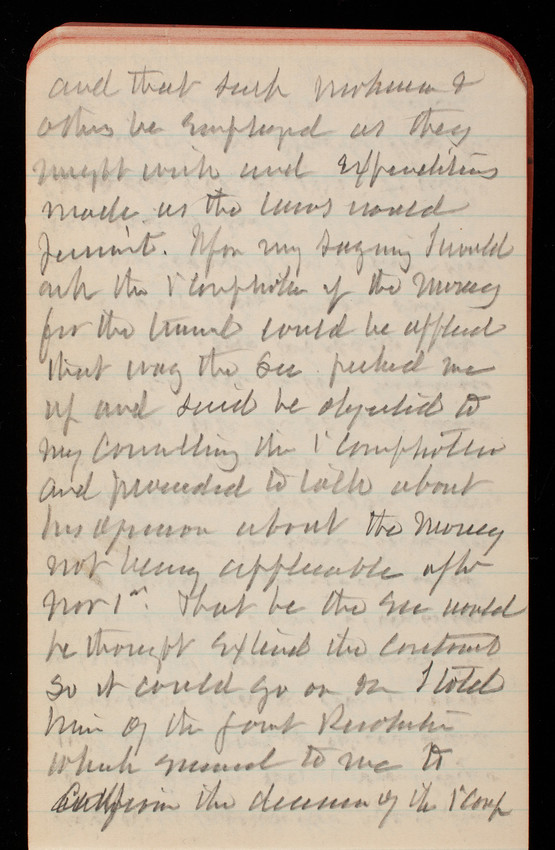 and that such &
others be employed as they
might wish and expenditures
made as the laws would
permit. Upon my saying I would
ask the 1 Comptroller if the money
for the tunnel could be applied
that way the Sec. picked me
up and said he objected to
my consulting the 1 Comptroller
and proceeded to talk about
his opinion about the money
not being applicable after
Nov 1st. That he the Sec would
he thought extend the contract
so it could go on I told
him of the joint Resolution
which seemed to me to
the decision of the 1 Comp